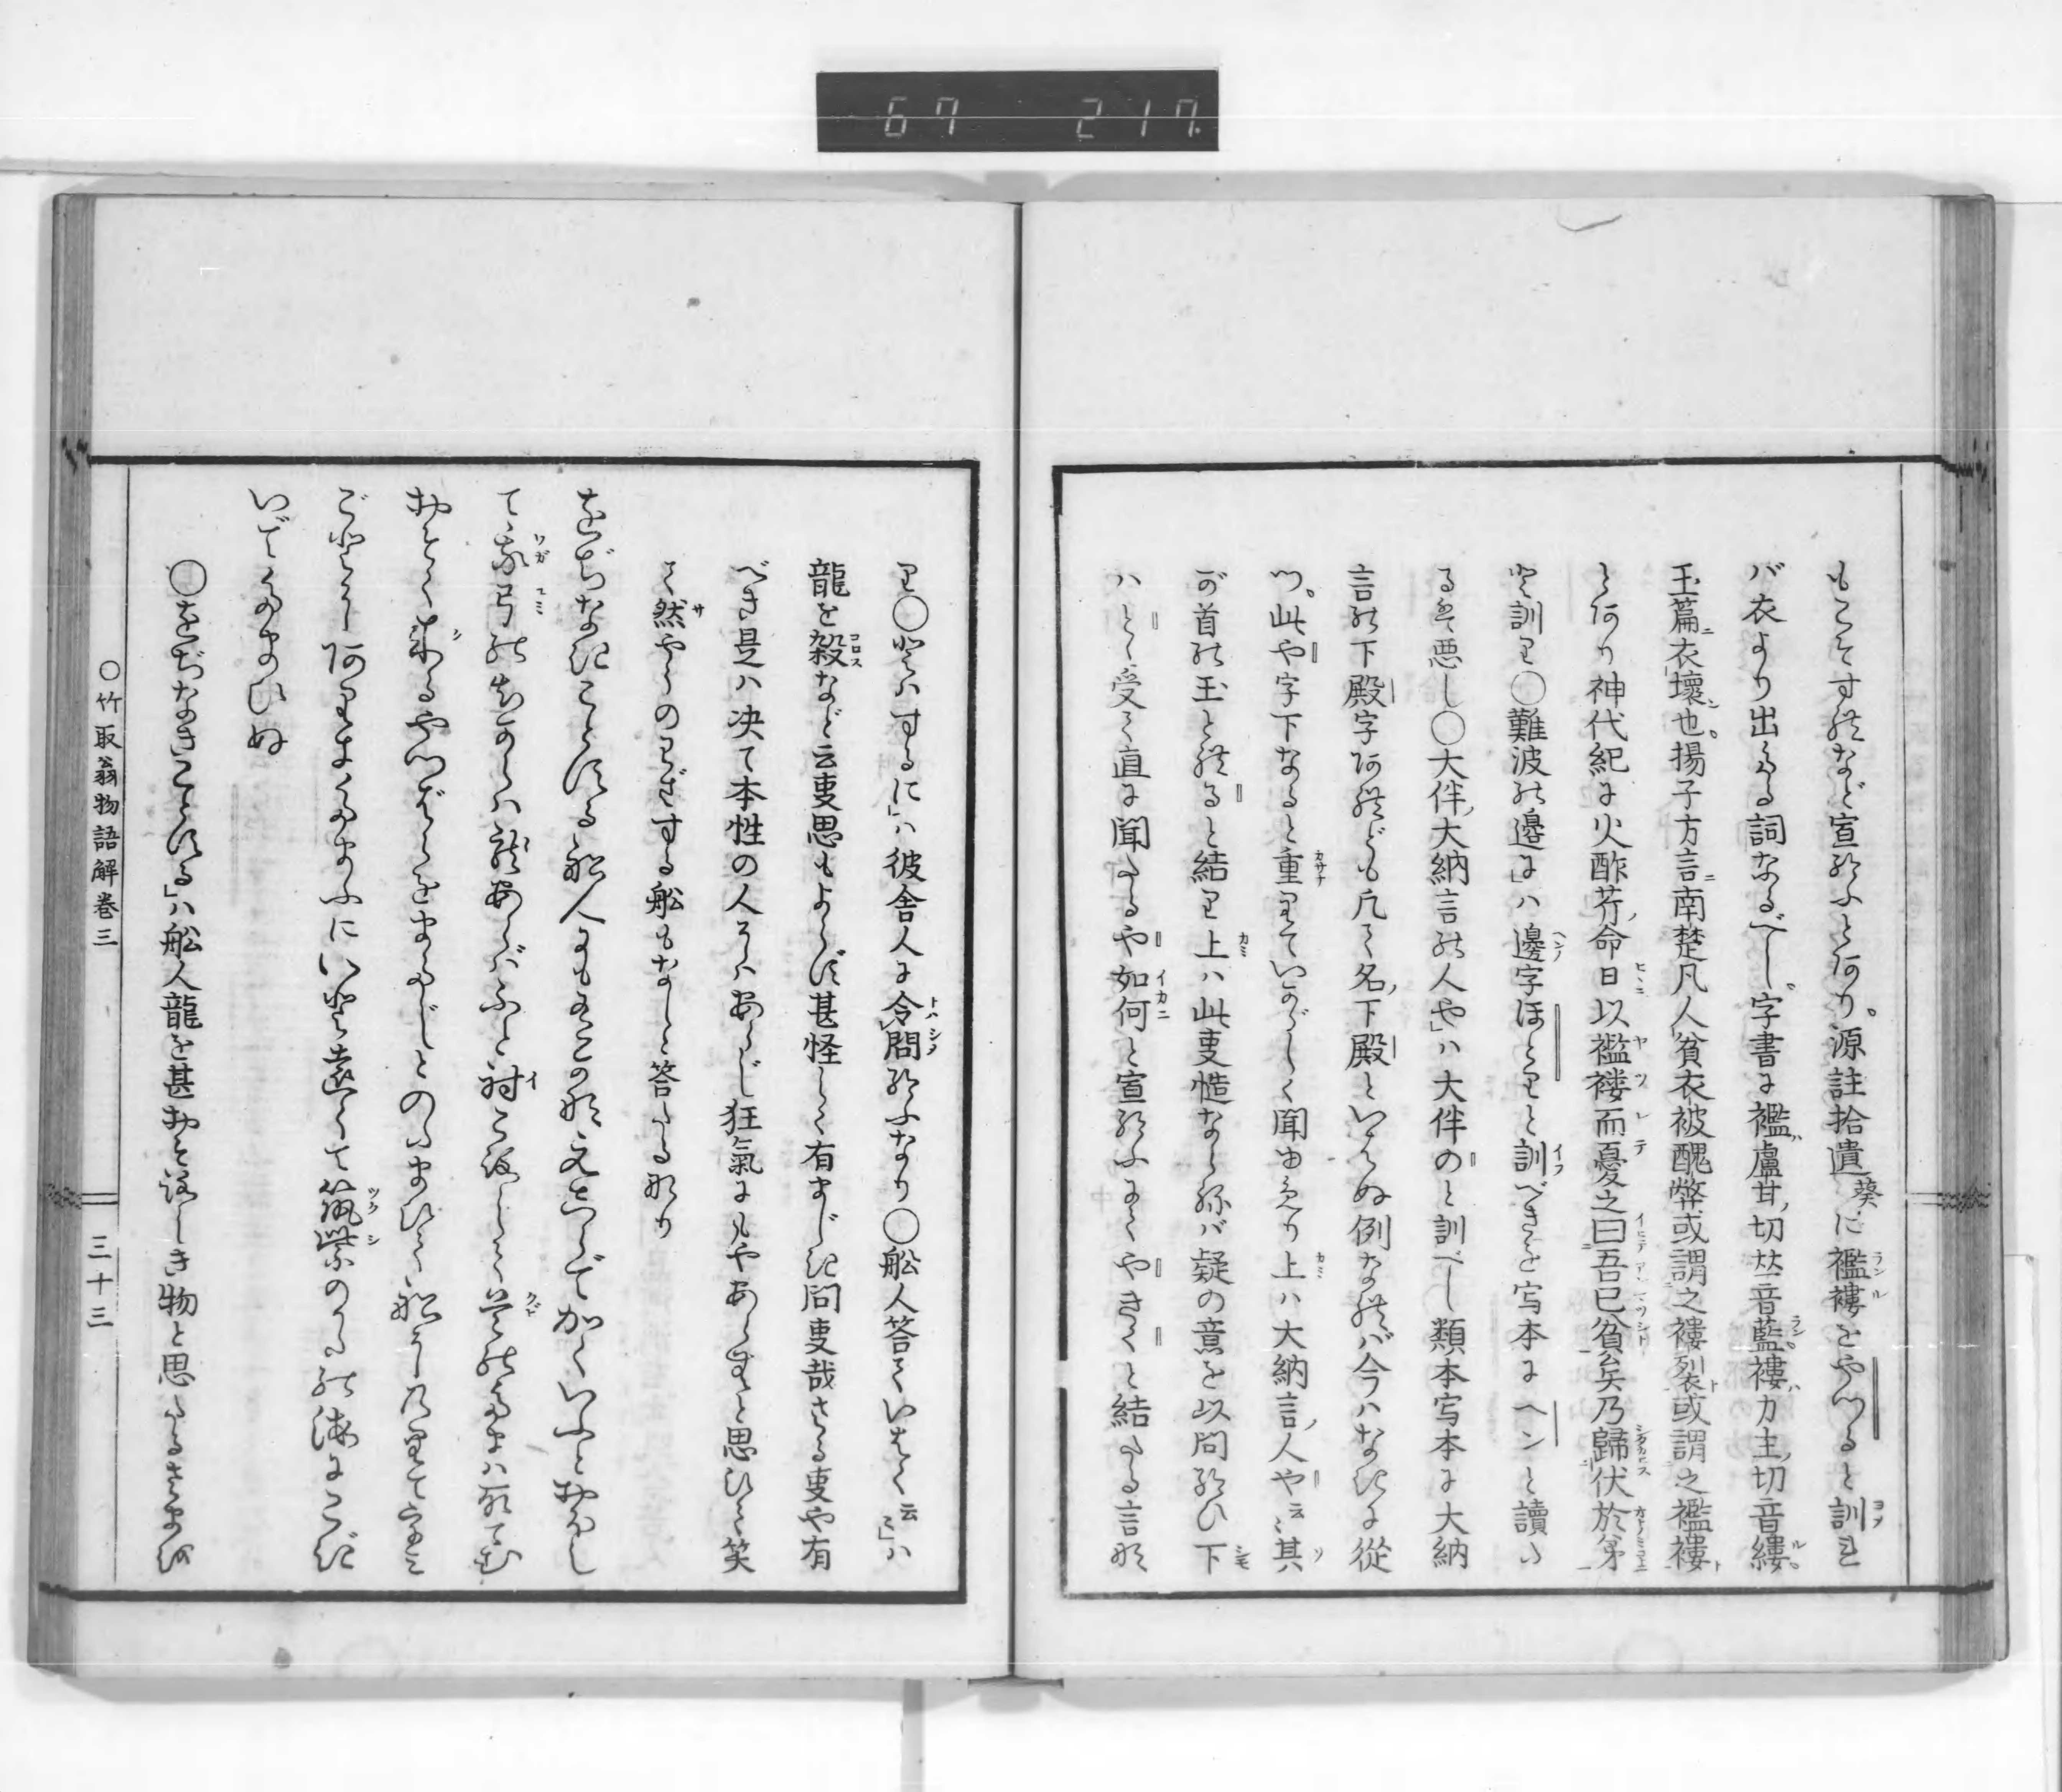 67 217
もこそすれなど宣給ふとあり。源註拾遺葵に襤褸をやつると訓れ
バ衣より出たる詞なるべし。字書に襤ハ盧甘切𠀋音藍褸ハ力主切音縷
玉篇ニ衣壊也。揚子方言ニ南楚凡人貧衣被醜弊或謂之褸裂或謂之襤褸
とあり神代紀に火酢芹命日以襤褸而憂之曰吾已貧矣乃歸伏於弟
と訓り〇難波の邊に」ハ邊字ほとりと訓べきを写本にヘンと讀た
るは悪し〇大伴大納言の人や」ハ大伴のと訓べし類本写本に大納
言の下殿字あれども凡て名下殿といはぬ例なれバ今ハなきに從
つ。此や字下なると重りていかゞしく聞ゆめり上ハ大納言人や云〻其
が首の玉とれると結り上ハ此叓慥ならねバ疑の意を以問給ひ下
ハとく受て直に聞たるや如何と宣給ふにてやきくと結たる言な
り〇とハするに」ハ彼舎人に令問給ふなり〇舩人答ていはく云〻」ハ
龍を殺など云叓思もよらず甚怪しく有まじき問叓哉さる叓や有
べき是ハ决て本性の人にハあらじ狂氣にもやあらむと思ひて笑
て然やうのわざする舩もなしと答たるなり
をぢなきことする舩人にもあるかなえしらでかくいふとおぼし
て我弓の力ハ龍あらバふと射ころして首の玉ハとりてむ
おそく来るやつバらをまたじとのたまひて舩にのりて海ごと
にありきたまふにいと遠くて筑紫のかたの海にこぎ
いでたまひぬ
〇をぢなきことする」ハ舩人龍を甚おそろしき物と思たるさまな
〇竹取翁物語解巻三
三十三